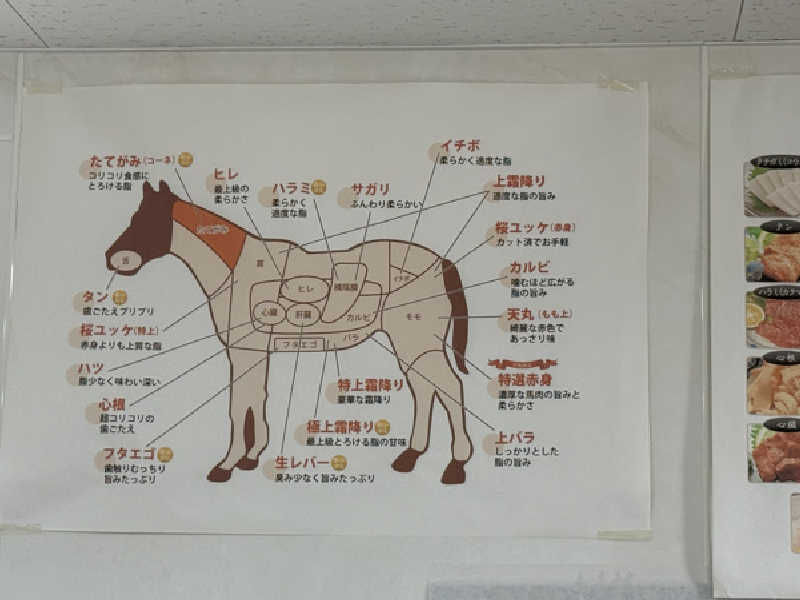 たてがみ(コーネ)
コリコリ食感に
とろける脂
ヒレ
最上級の
柔らかさ
ハラミ
柔らかく
適度な脂
サガリ
ふんわり柔らかい
イチボ
柔らかく適度な脂
上霜降り
適度な脂の旨み
桜ユッケ(赤身)
カット済でお手軽
カルビ
噛むほど広がる
脂の旨み
天丸(もも上)
綺麗な赤色で
あっさり味
特選赤身
濃厚な馬肉の旨みと
柔らかさ
上バラ
しっかりとした
脂の旨み
タン
歯ごたえプリプリ
桜ユッケ(特上)
赤身よりも上質な脂
ハツ
脂少なく味わい深い
心根
超コリコリの
歯ごたえ
フタエゴ
歯触りむっちり
旨みたっぷり
特上霜降り
豪華な霜降り
極上霜降り
最上級とろける脂の甘味
生レバー
臭み少なく旨みたっぷり
たてがみ
舌
肩
ヒレ
横隔膜
イチボ
心臓
肝臓
カルビ
モモ
バラ
フタエゴ
タン
心根
心臓